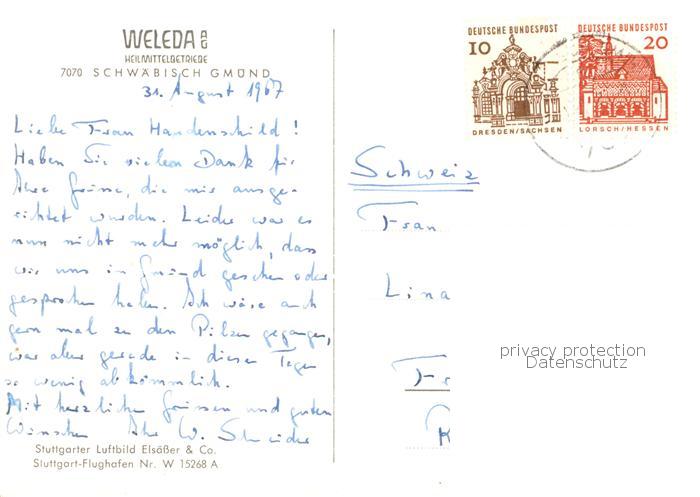 WELEDA AG
HEILMITTELBETRIEBE
7070 SCHWÄBISCH GMÜND
31. August 1967
Liebe Frau Handenschild!
Haben Sie vielen Dank für
Ihre Grüsse, die mir ausge-
richtet wurden. Leider war es
nun nicht mehr möglich, dass
wir uns in Gmünd gesehen oder
gesprochen haben. Ich wäre auch
gern mal zu den Pilzen gegangen,
war aber gerade in diesen Tagen
so wenig abkömmlich.
Mit herzlichen Grüssen und guten
Wünschen Ihr W.
Stuttgarter Luftbild Elsäßer & Co.
Stuttgart-Flughafen Nr. W 15268 A
DEUTSCHE BUNDESPOST
10
DRESDEN/SACHSEN
DEUTSCHE BUNDESPOST
20
LORSCH/HESSEN
Schweiz
Frau
Lina
privacy protection
Datenschutz